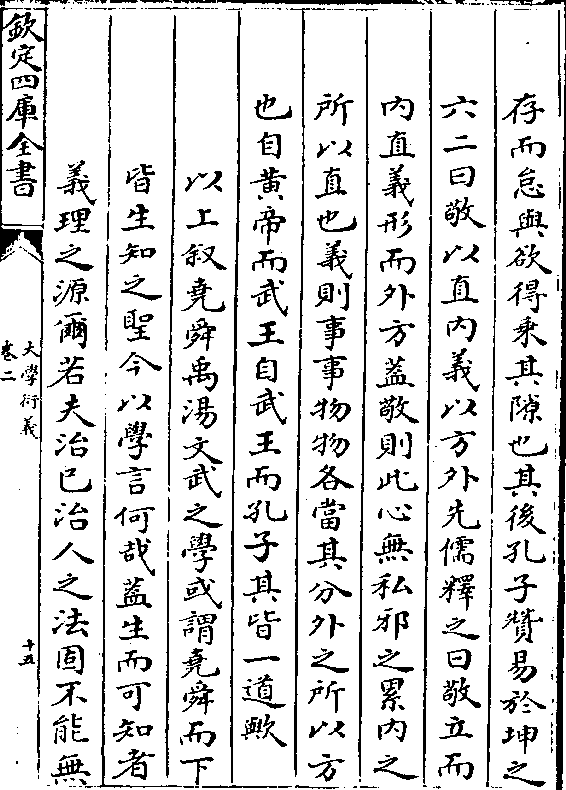 存而怠與欲得乘其隙也其後孔子贊易於坤之
六二曰敬以直內義以方外先儒釋之曰敬立而
內直義形而外方蓋敬則此心無私邪之累內之
所以直也義則事事物物各當其分外之所以方
也自黃帝而武王自武王而孔子其皆一道歟
以上叙堯舜禹湯文武之學或謂堯舜而下
皆生知之聖今以學言何哉蓋生而可知者
義理之源爾若夫治已治人之法固不能無
欽定四庫全書
大學衍義
卷二
十五